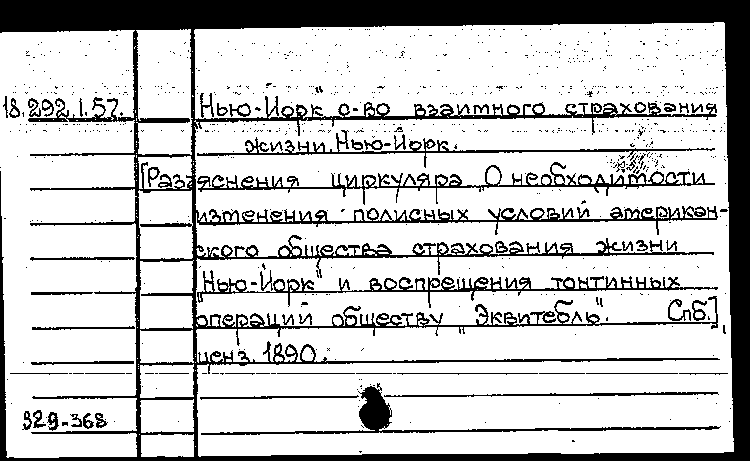 18.292.1.57. „Нью-Йорк“, о-во взаимного страхования
жизни. Нью-Йорк.
[Разъяснения циркуляра „О необходимости
изменения полисных условий американ-
ского общества страхования жизни
„Нью-Йорк“ и воспрещения тонтинных
операций обществу „Эквитебль“. Спб.],
ценз. 1890.
929-368